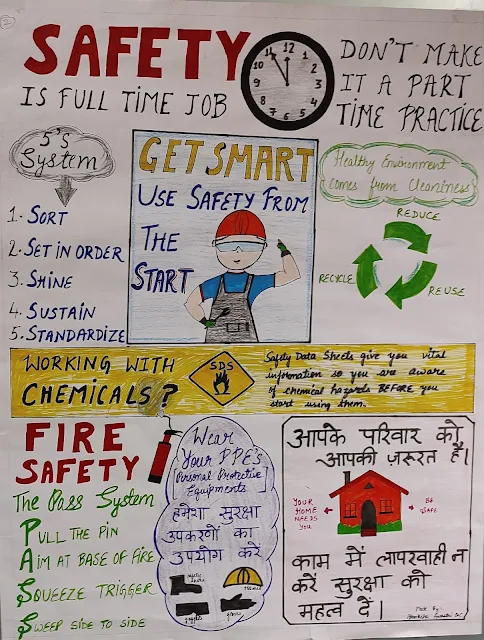 SAFETY
IS FULL TIME JOB
12
1
2
3
4
5
6
7
8
9
10
11
DON'T MAKE
IT A PART
TIME PRACTICE
5'S
SYSTEM
1. SORT
2. SET IN ORDER
3. SHINE
4. SUSTAIN
5. STANDARDIZE
GET SMART
USE SAFETY FROM
THE
START
Healthy Environment
comes from Cleaniness
REDUCE
RECYCLE
REUSE
WORKING WITH
CHEMICALS?
SDS
Safety Data Sheets give you vital
information so you are aware
of chemical hazards BEFORE you
start using them.
FIRE
SAFETY
The Pass System
PULL THE PIN
AIM AT BASE OF FIRE
SQUEEZE TRIGGER
SWEEP SIDE TO SIDE
Wear
Your PPE's
[Personal Protective
Equipments]
हमेशा सुरक्षा
उपकरणों का
उपयोग करें
आपके परिवार को
आपकी ज़रूरत है।
YOUR
HOME
NEEDS
YOU
BE
SAFE
काम में लापरवाही न
करें सुरक्षा को
महत्व दें।